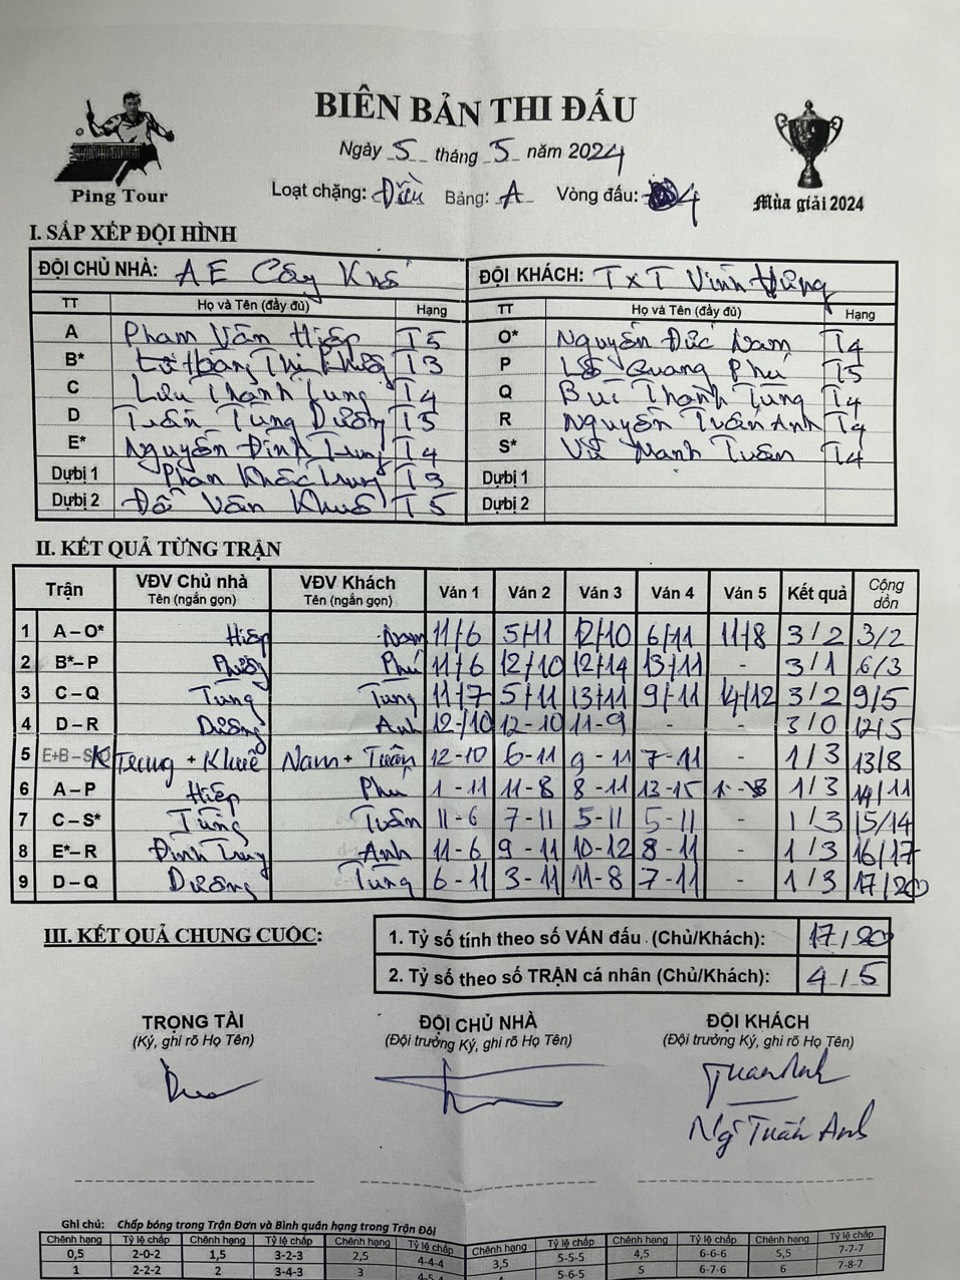 BIÊN BẢN THI ĐẤU
Ngày 5 tháng 5 năm 2024
Ping Tour
Loạt chặng: Điều Bảng: A Vòng đấu: 4
Mùa giải 2024
I. SẮP XẾP ĐỘI HÌNH
ĐỘI CHỦ NHÀ: A E Cây Khế ĐỘI KHÁCH: TxT Vĩnh Hưng
TT Họ và Tên (đầy đủ) Hạng TT Họ và Tên (đầy đủ) Hạng
A Phạm Văn Hiệp T5 O* Nguyễn Đức Nam T4
B* Hoàng Thị Phượng T3 P Quang Phú T5
C Lưu Thanh Tùng T4 Q Bùi Thanh Tùng T4
D Trần Tùng Dương T5 R Nguyễn Tuấn Anh T4
E* Nguyễn Đình Trung T4 S* Vũ Mạnh Tuấn T4
Dự bị 1 Phan Khắc Trung T3 Dự bị 1
Dự bị 2 Đỗ Văn Khuê T5 Dự bị 2
II. KẾT QUẢ TỪNG TRẬN
Trận VĐV Chủ nhà VĐV Khách Ván 1 Ván 2 Ván 3 Ván 4 Ván 5 Kết quả Cộng dồn
Tên (ngắn gọn) Tên (ngắn gọn)
1 A – O* Hiệp Nam 11/6 5/11 12/10 6/11 11/8 3/2 3/2
2 B* – P Phượng Phú 11/6 12/10 12/14 13/11 - 3/1 6/3
3 C – Q Tùng Tùng 11/7 5/11 13/11 9/11 14/12 3/2 9/5
4 D – R Dương Anh 12-/10 12-10 11-9 - - 3/0 12/5
5 E+B – K Trung + Khuê Nam + Tuấn 12-10 6-11 9-11 7-11 - 1/3 13/8
6 A – P Hiệp Phú 1-11 11-8 8-11 13-15 1/3 14/11
7 C – S* Tùng Tuấn 11-6 7-11 5-11 5-11 - 1/3 15/14
8 E* – R Đình Trung Anh 11-6 9-11 10-12 8-11 - 1/3 16/17
9 D – Q Dương Tùng 6-11 3-11 11-8 7-11 - 1/3 17/20
III. KẾT QUẢ CHUNG CUỘC:
1. Tỷ số tính theo số VÁN đấu (Chủ/Khách): 17/20
2. Tỷ số theo số TRẬN cá nhân (Chủ/Khách): 4/5
TRỌNG TÀI ĐỘI CHỦ NHÀ ĐỘI KHÁCH
(Ký, ghi rõ Họ Tên) (Đội trưởng Ký, ghi rõ Họ Tên) (Đội trưởng Ký, ghi rõ Họ Tên)
Tuan Anh
Ng Tuấn Anh
Ghi chú: Chấp bóng trong Trận Đơn và Bình quân hạng trong Trận Đôi
Chênh hạng Tỷ lệ chấp Chênh hạng Tỷ lệ chấp Chênh hạng Tỷ lệ chấp Chênh hạng Tỷ lệ chấp Chênh hạng Tỷ lệ chấp Chênh hạng Tỷ lệ chấp
0,5 2-0-2 1,5 3-2-3 2,5 4-4-4 3,5 5-5-5 4,5 6-6-6 5,5 7-7-7
1 2-2-2 2 3-4-3 3 4-5-4 5-6-5 5 6-7-6 6 7-8-7